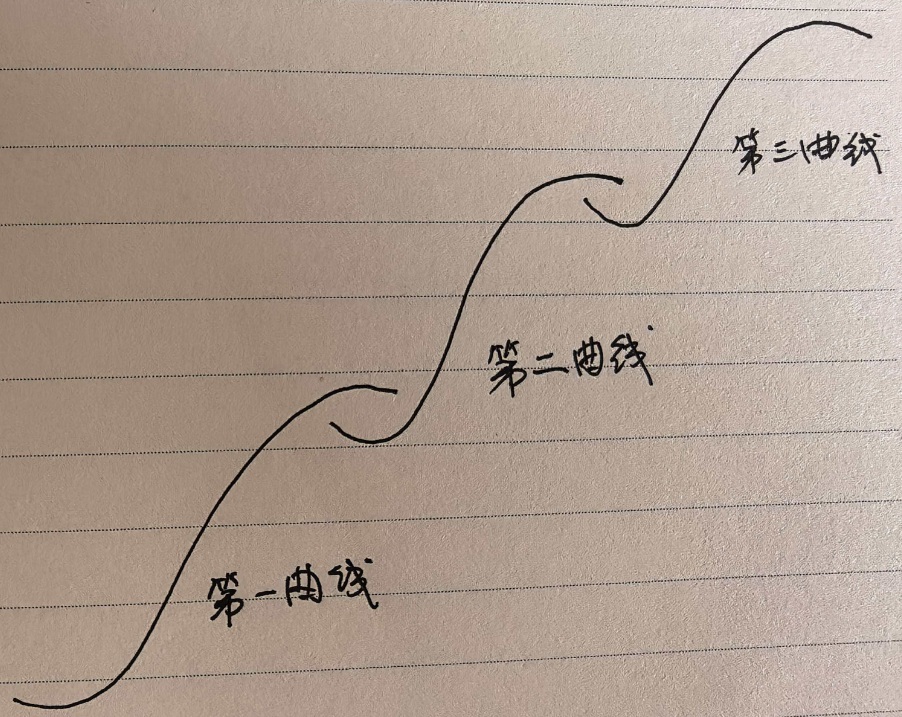 第三曲线
第二曲线
第一曲线